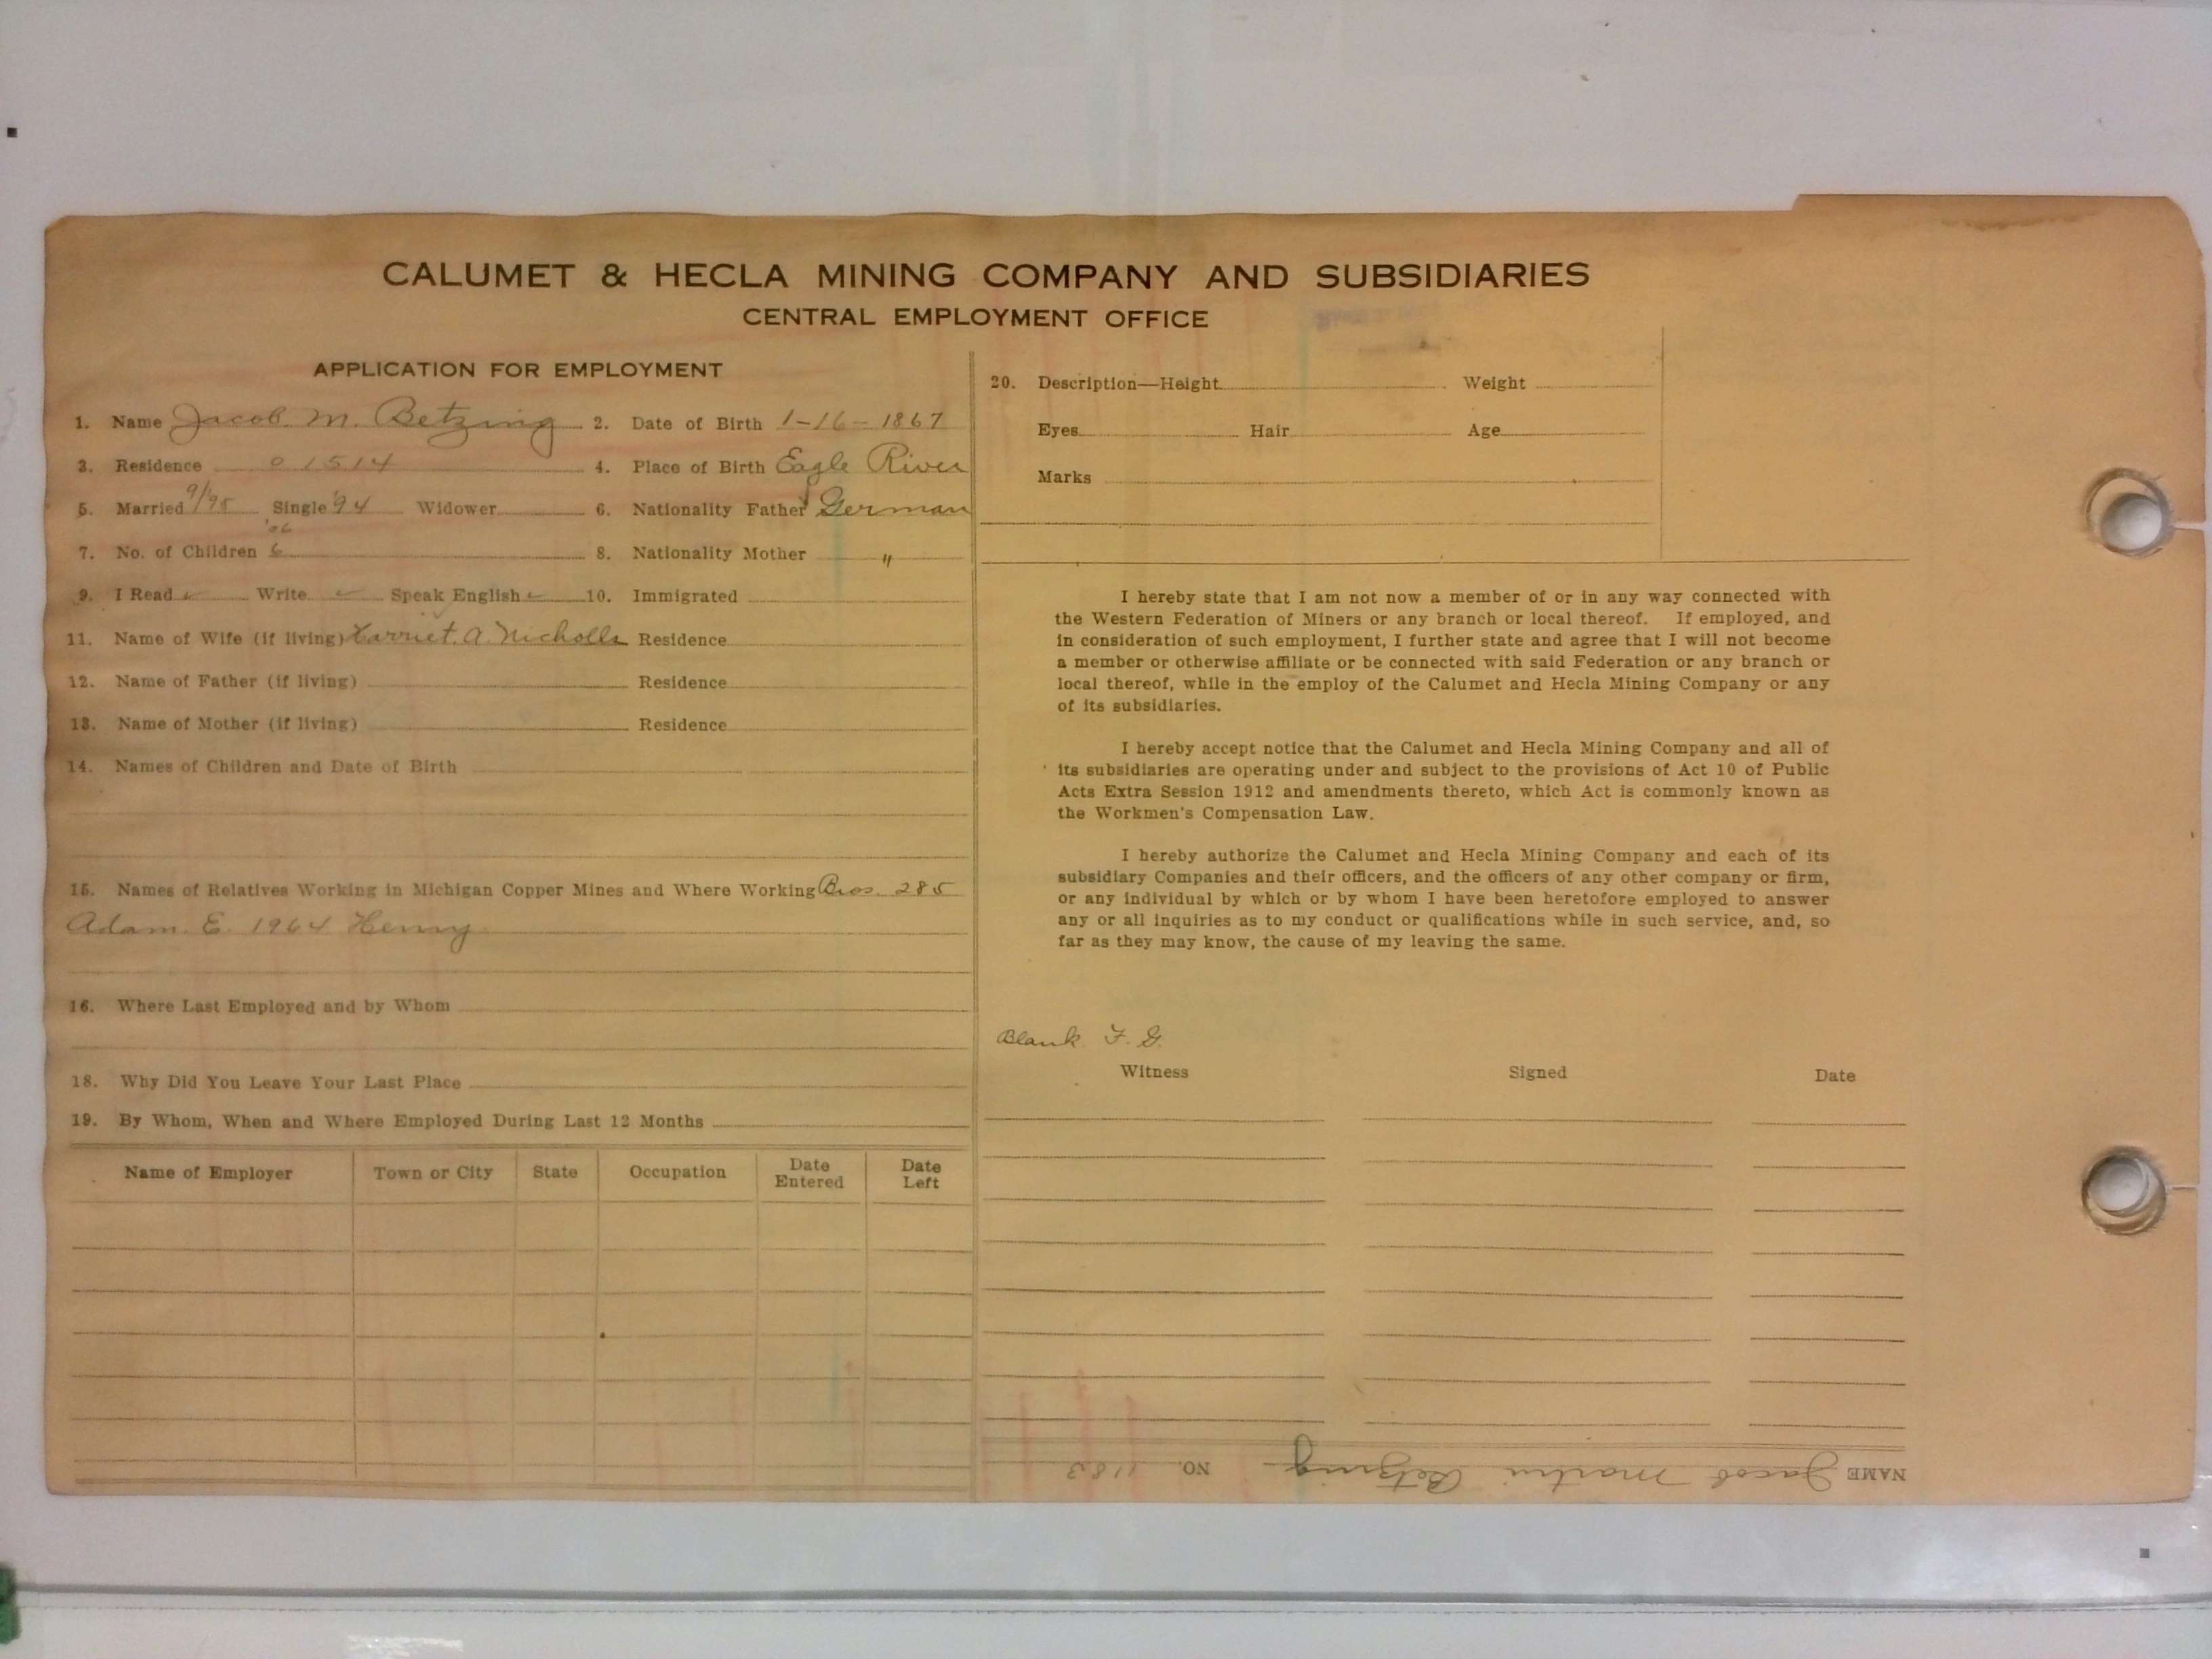 CALUMET & HECLA MINING COMPANY AND SUBSIDIARIES
CENTRAL EMPLOYMENT OFFICE
APPLICATION FOR EMPLOYMENT
1. Name Jacob. M. Betzing 2. Date of Birth 1-16-1867
3. Residence 01514 4. Place of Birth Eagle River
5. Married 9/95 Single '94 Widower 6. Nationality Father German
'06
7. No. of Children 6 8. Nationality Mother "
9. I Read ✓ Write ✓ Speak English ✓ 10. Immigrated
11. Name of Wife (if living) Harriet. A. Nicholls Residence
12. Name of Father (if living) Residence
13. Name of Mother (if living) Residence
14. Names of Children and Date of Birth
15. Names of Relatives Working in Michigan Copper Mines and Where Working Bros. 285
Adam. E. 1964 Henry
16. Where Last Employed and by Whom
18. Why Did You Leave Your Last Place
19. By Whom, When and Where Employed During Last 12 Months
Name of Employer Town or City State Occupation Date Entered Date Left
20. Description—Height Weight
Eyes Hair Age
Marks
I hereby state that I am not now a member of or in any way connected with
the Western Federation of Miners or any branch or local thereof. If employed, and
in consideration of such employment, I further state and agree that I will not become
a member or otherwise affiliate or be connected with said Federation or any branch or
local thereof, while in the employ of the Calumet and Hecla Mining Company or any
of its subsidiaries.
I hereby accept notice that the Calumet and Hecla Mining Company and all of
its subsidiaries are operating under and subject to the provisions of Act 10 of Public
Acts Extra Session 1912 and amendments thereto, which Act is commonly known as
the Workmen's Compensation Law.
I hereby authorize the Calumet and Hecla Mining Company and each of its
subsidiary Companies and their officers, and the officers of any other company or firm,
or any individual by which or by whom I have been heretofore employed to answer
any or all inquiries as to my conduct or qualifications while in such service, and, so
far as they may know, the cause of my leaving the same.
Blank. F. G.
Witness Signed Date
NAME Jacob Martin Betzing NO. 1183